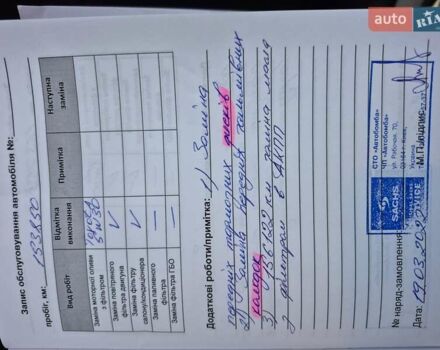 auto RIA
Запис обслуговування автомобіля №:
пробіг, км: 153350
Вид робіт
Відмітка виконання
Примітка
Наступна заміна
Заміна моторної оливи з фільтром
5w30
Заміна повітряного фільтра двигуна
Заміна фільтру салону/кондиціонера
Заміна паливного фільтра
—
Заміна фільтра ГБО
—
Додаткові роботи/примітка: 1) Заміна
передніх тормозних дисків
2) Заміна передніх гальмівних
колодок
3) 156422 км заміна масла
з фільтром в АКПП
№ наряд-замовлення
Дата: 09.03.202
SACHS
SERVICE
СТО «Автобомба»
ЧП «Автобомба»
ул. Рабочая, 70,
Украина